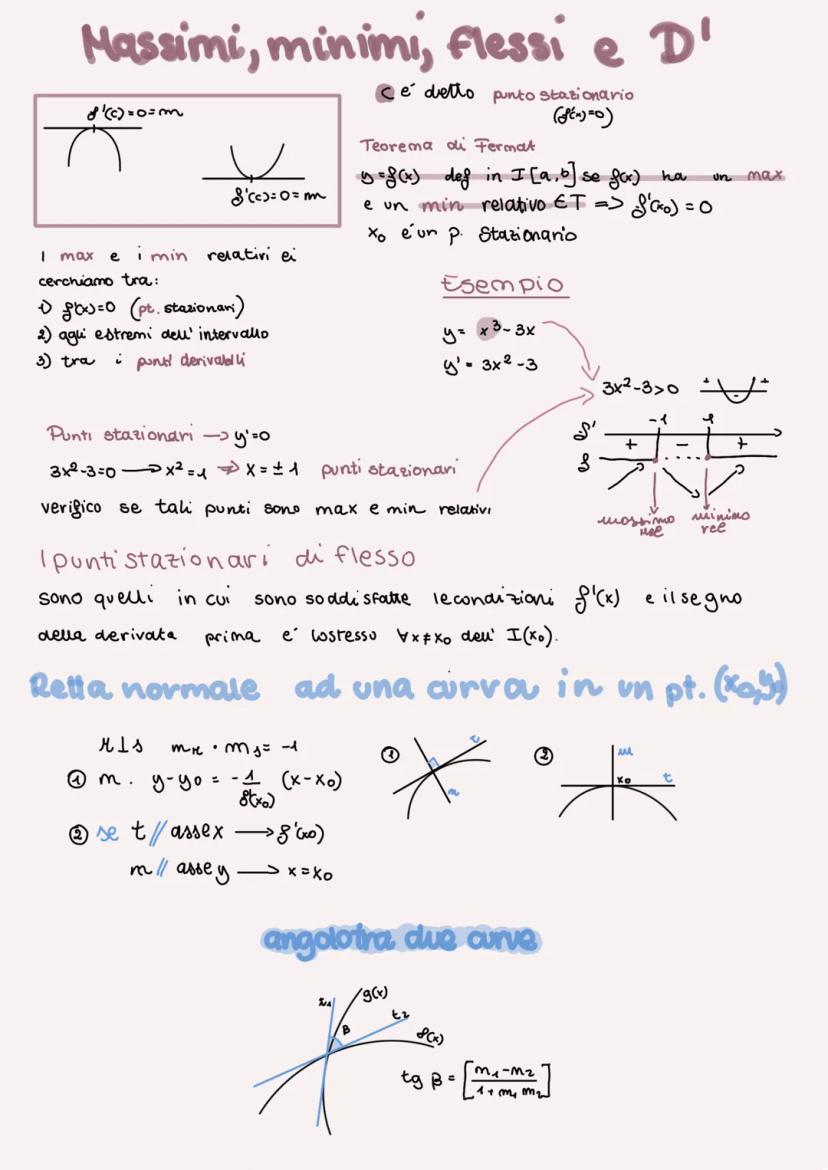 Massimi, minimi, flessi e D'
f'(c)=0=m
f'(c)=0=m
c e' detto punto stazionario
(f'(x)=0)
Teorema di Fermat
y=f(x) def in I[a,b] se f(x) ha un max
e un min relativo ∈ I => f'(x₀)=0
x₀ e' un p. stazionario
I max e i min relativi ei
cerchiamo tra:
1) f'(x)=0 (pt. stazionari)
2) agli estremi dell'intervallo
3) tra i punti derivabili
Esempio
y= x³-3x
y'= 3x²-3
3x²-3>0
+ - +
-1 1
f' + - +
f
massimo rel
minimo rel
Punti stazionari → y'=0
3x²-3=0 → x²=1 ⇒ x=±1 punti stazionari
verifico se tali punti sono max e min relativi
I punti stazionari di flesso
sono quelli in cui sono soddisfatte le condizioni f'(x) e il segno
della derivata prima e' lostesso ∀x≠x₀ dell' I(x₀).
Retta normale ad una curva in un pt. (x₀,y₀)
r⊥s mr · ms = -1
① n. y-y₀ = -1/f'(x₀) (x-x₀)
② se t // asse x → f'(x₀)
n // asse y → x=x₀
① t
n
② n
x₀ t
angolo tra due curve
t₁ g(x)
t₂
β
f(x)
tg β = [m₁-m₂ / 1+m₁ m₂]